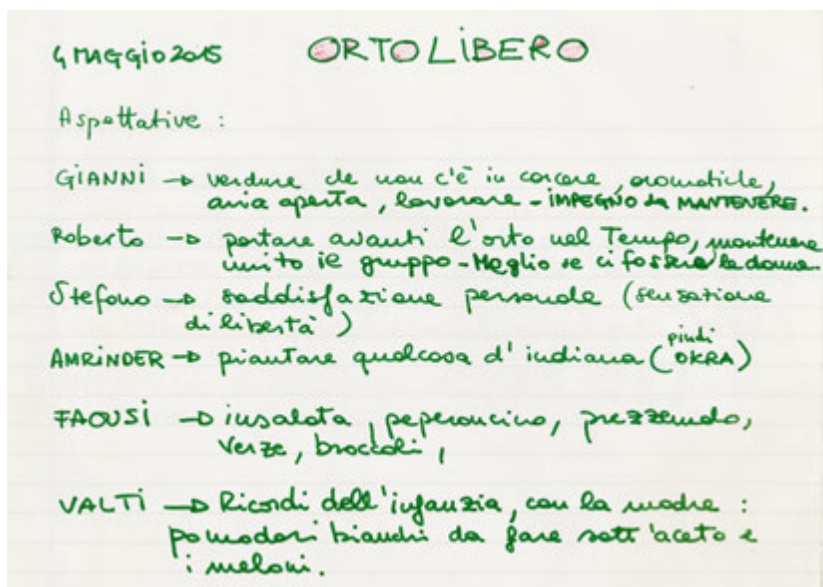 4 MAGGIO 2015 ORTO LIBERO
Aspettative :
GIANNI → verdure che non c'è in carcere, aromatiche,
aria aperta, lavorare - IMPEGNO da MANTENERE.
Roberto → portare avanti l'orto nel Tempo, mantenere
unito il gruppo - Meglio se ci fossero le donne.
Stefano → soddisfazione personale (sensazione
di libertà)
pindi
AMRINDER → piantare qualcosa d'indiana (OKRA)
FAOUSI → insalata, peperoncino, prezzemolo,
verze, broccoli,
VALTI → Ricordi dell'infanzia, con la madre :
pomodori bianchi da fare sott'aceto e
i meloni.